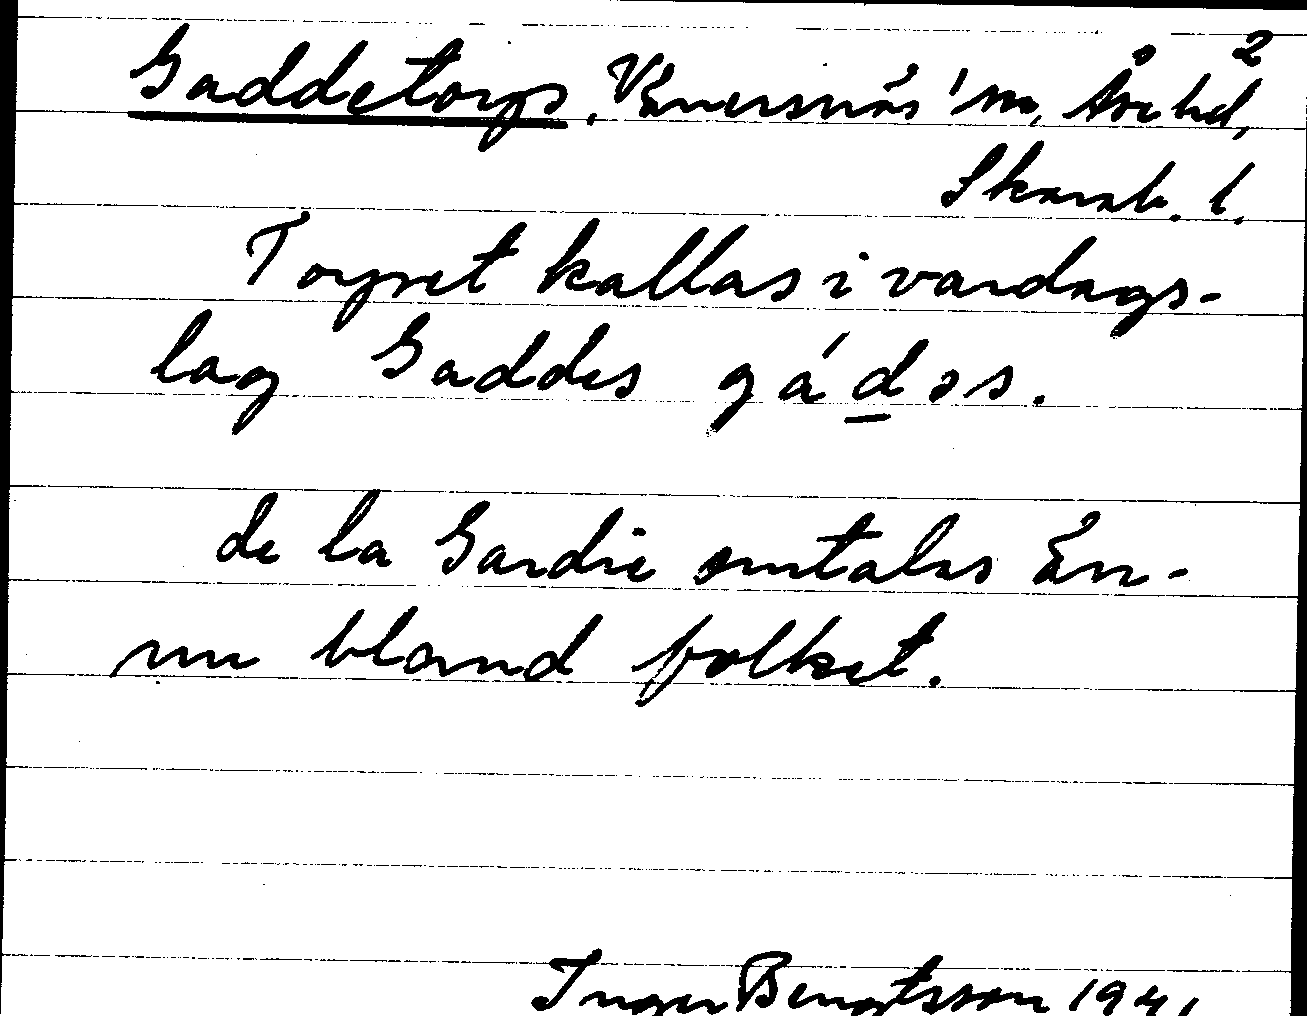 2
Gaddetorp, Vänersnäs sn, Åse hd,
Skarab. l.
Torpet kallas i vardags-
lag Gaddes gádəs.
de la Gardie omtalas än-
nu bland folket.
Inger Bengtsson 1941